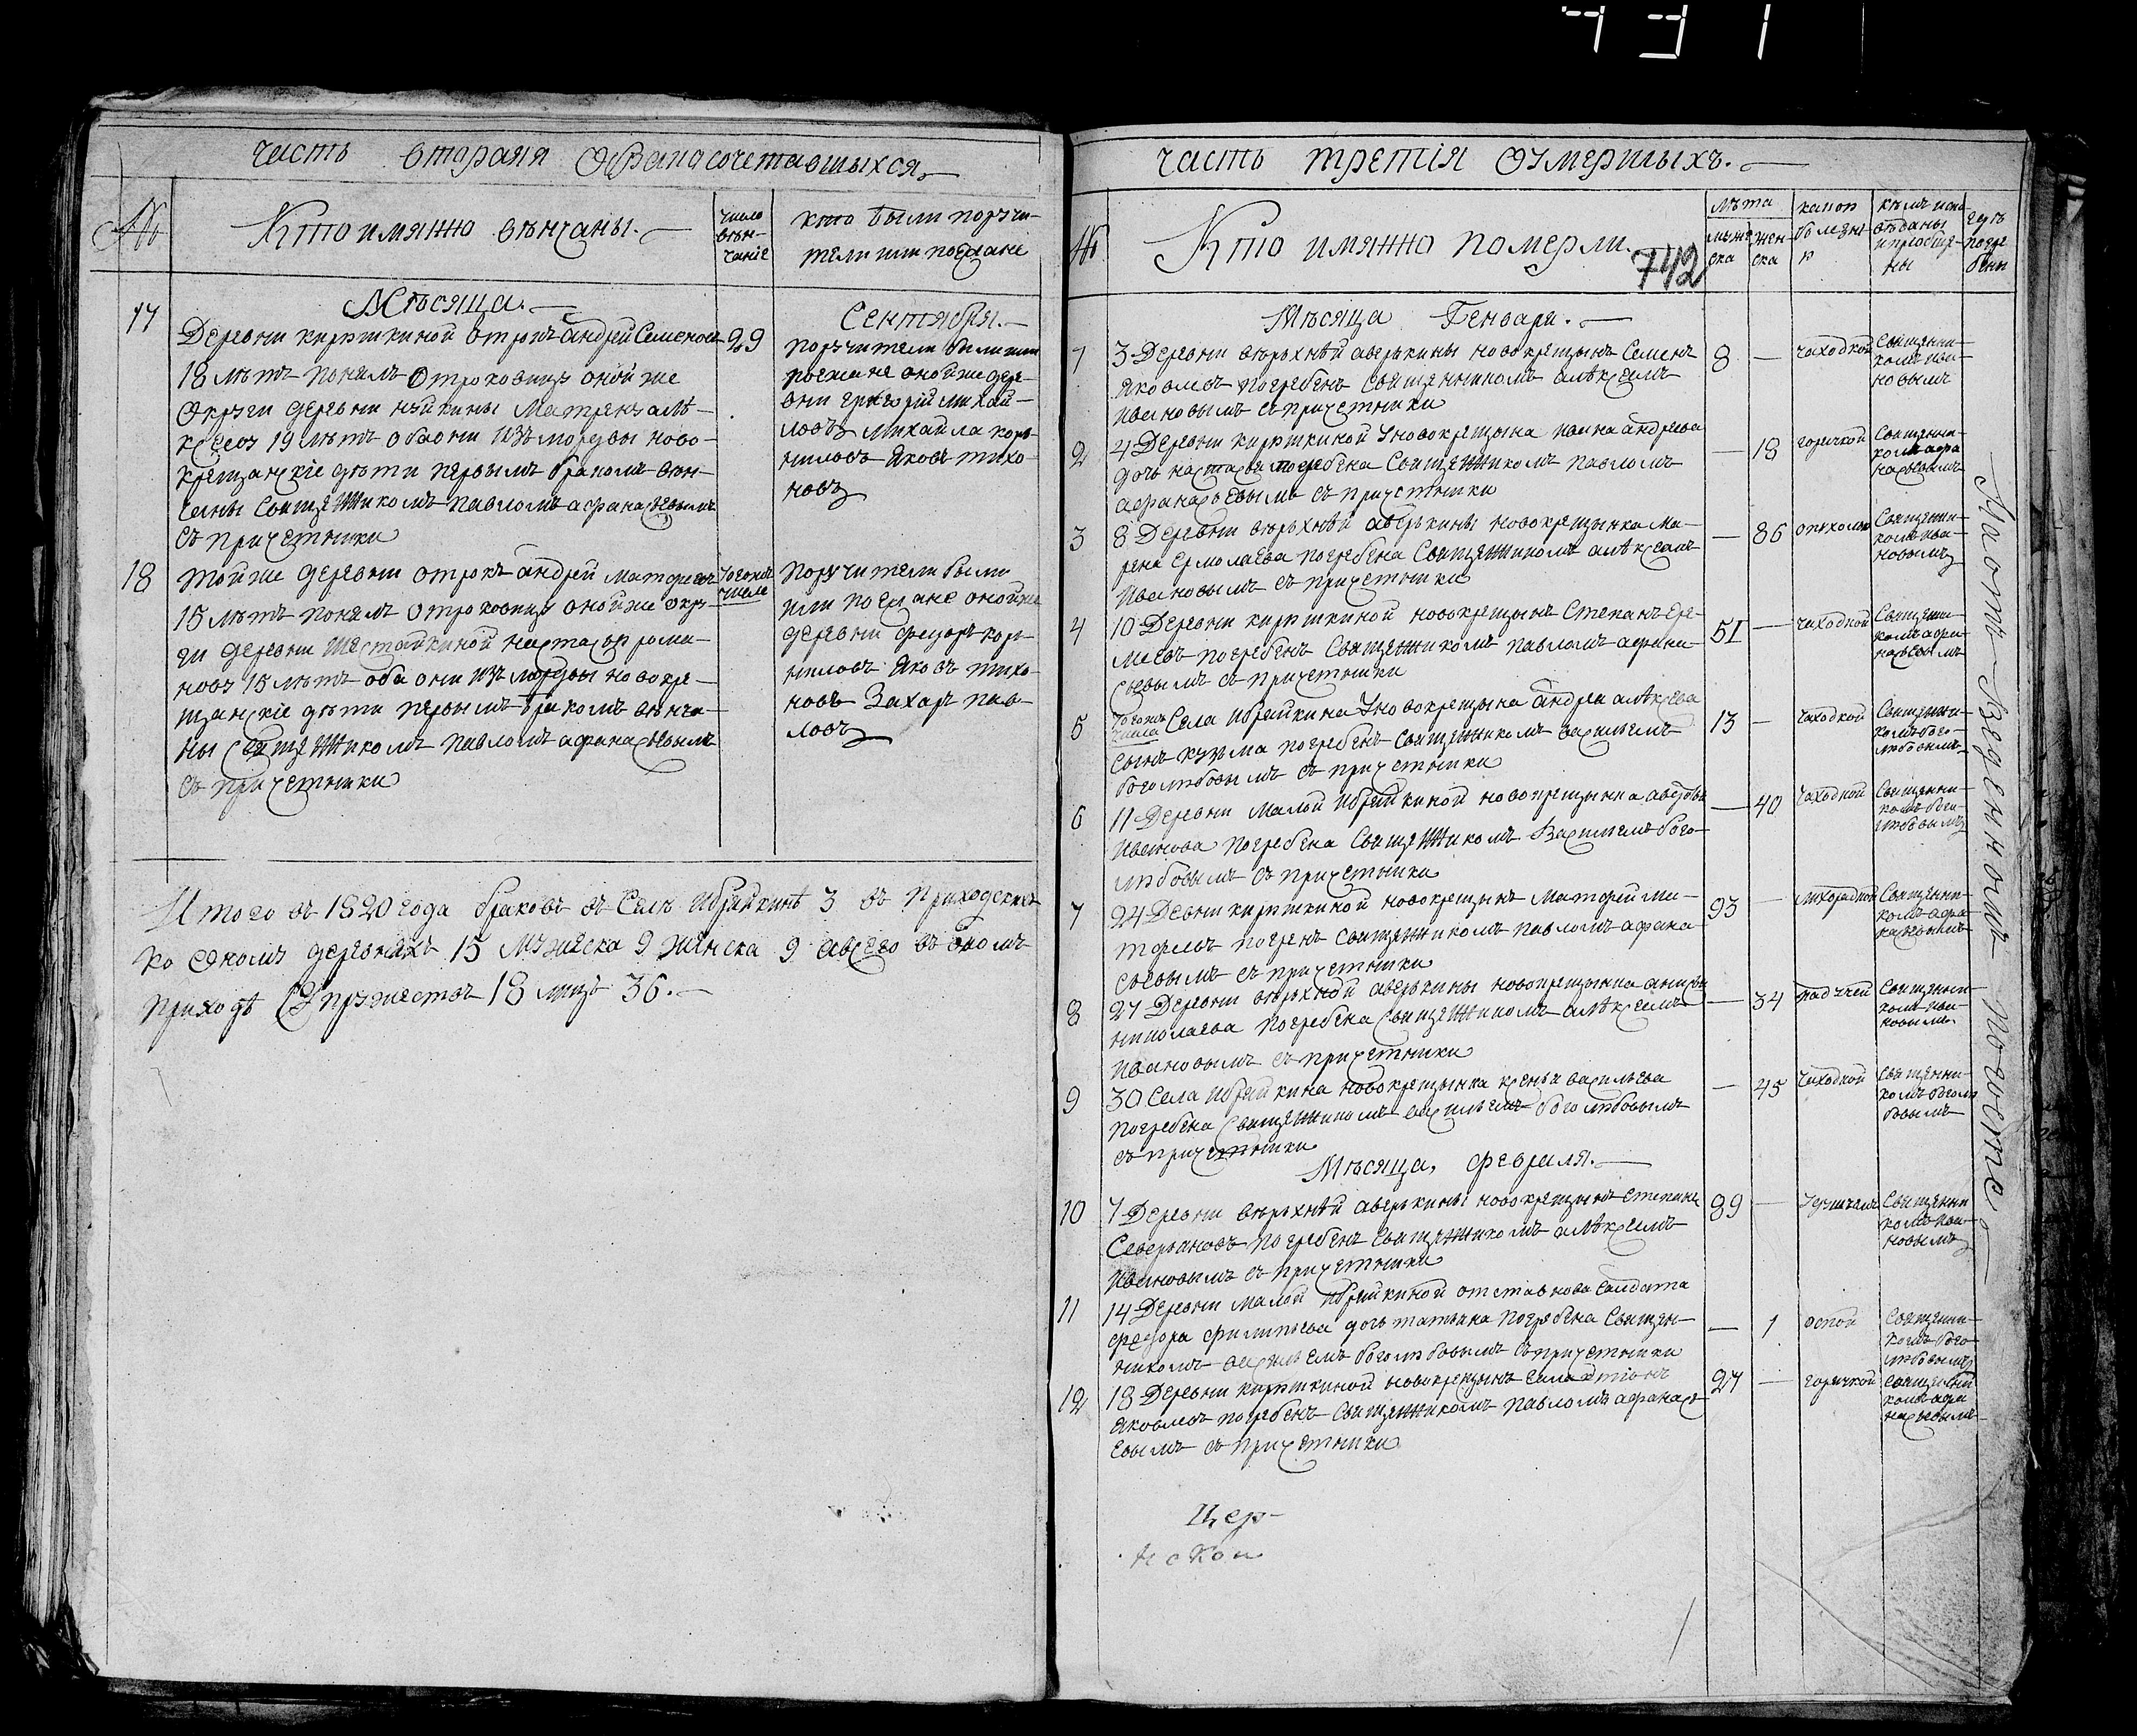 431
часть вторая Обрачасочетавшыхся
№
Кто имянно вѣнчаны.
число
вѣн-
чаніе
кто были поручи-
тели или поезжане
Мѣсяца.
Сентября.
17
Деревни кирюшкиной отрокъ андрей Семеновъ
18 лѣтъ понялъ Отроковицу оной же
Округи деревни матрену алѣ-
ксееву 19 лѣтъ оба они изъ мордвы ново-
крещанскіе дѣти первымъ бракомъ вѣн-
чаны Священникомъ павломъ афанасьевымъ
съ причетники
29
поручители были или
поезжане оной же дере-
вни григорій михай-
ловъ михайла кор-
ниловъ яковъ тихо-
новъ
18
той же деревни отрокъ андрей матфеевъ
15 лѣтъ понялъ отроковицу оной же окру-
ги деревни Шестайкиной настасью рома-
нову 15 лѣтъ оба они изъ мордвы новокре-
щанскіе дѣти первымъ бракомъ вѣнча-
ны священникомъ павломъ афанасьевымъ
съ причетники
Тогожъ
числа
Поручители были
или поезжане оной же
деревни федоръ кор-
ниловъ яковъ тихо-
новъ Захаръ пав-
ловъ
Итого въ 1820 года браковъ въ Селѣ Ибряйкинѣ 3 въ приходскихъ
ко оному деревняхъ 15 мужеска 9 женска 9 а всего въ ономъ
приходѣ Супружествъ 18 лицъ 36.
часть третія Оумершыхъ.
№
Кто имянно померли.
742
лѣта
муже
ска
жен-
ска
какой
болезни
кѣмъ испо-
вѣданы
и приобще-
ны
гдѣ
погре
бены
Мѣсяца Генваря.
1
3 Деревни верьхнѣй аверькины новокрещынъ Семенъ
яковлевъ погребенъ Священникомъ алѣксеемъ
Ивановымъ съ причетники
8
—
чахоткой
Священни-
комъ ива-
новымъ
2
4 Деревни кирюшкиной у новокрещына ивана андреева
дочь настасья погребена Священникомъ павломъ
афанасьевымъ съ причетники
—
18
горячкой
Священни-
комъ афа
насьевымъ
3
8 Деревни верьхнѣй аверькины новокрещынка ма-
рена Ермолаева погребена Священникомъ алѣксеемъ
Ивановымъ съ причетники
—
86
опухолью
Священни-
комъ ива-
новымъ
4
10 Деревни кирюшкиной новокрещынъ Степанъ Ере-
меевъ погребенъ Священникомъ павломъ афана-
сьевымъ съ причетники
51
—
чахоткой
Священни-
комъ афа-
насьевымъ
5
Тогожъ
числа Села ибряйкина у новокрещына андрея алѣксева
Сынъ кузма погребенъ Священникомъ васильемъ
боголюбовымъ съ причетники
13
—
чахоткой
Священни-
комъ бого-
любовымъ
6
11 Деревни Малой ибряйкиной новокрещынка авдотья
Иванова погребена Священникомъ Васильемъ бого-
любовымъ съ причетники
—
40
чахоткой
Священни-
комъ бого-
любовымъ
7
24 Девни кирюшкиной новокрещынъ матфей ма-
тфеевъ погренъ Священникомъ павломъ афана-
сьевымъ съ причетники
93
—
лихорадкой
Священни-
комъ афа-
насьевымъ
8
27 Деревни верьхней аверькины новокрещынка
николаева погребена Священникомъ алѣксеемъ
Ивановымъ съ причетники
—
34
падучей
Священни-
комъ ива-
новымъ
9
30 Села ибряйкина новокрещынка ксенья васильева
погребена Священникомъ васильемъ боголюбовымъ
съ причетники
—
45
чахоткой
Священни-
комъ боголю
бовымъ
Мѣсяца, февраля.
10
7 Деревни верьхнѣй аверькины новокрещынъ Степанъ
Северьяновъ погребенъ Священникомъ алѣксеемъ
Ивановымъ съ причетники
89
—
Удушьемъ
Священни
комъ ива-
новымъ
11
14 Деревни малой ибряйкиной отставнова Салдата
федора филипьева дочь татьяна погребена Священ-
никомъ васильемъ боголюбовымъ съ причетники
—
1
оспой
Священни-
комъ бого-
любовымъ
12
18 Деревни кирюшкиной новокрещынъ галактіонъ
яковлевъ погребенъ Священникомъ павломъ афанась-
евымъ съ причетники
27
—
горячкой
Священни
комъ афа
насьевымъ
На отъ Веденномъ погосте.
Цер-